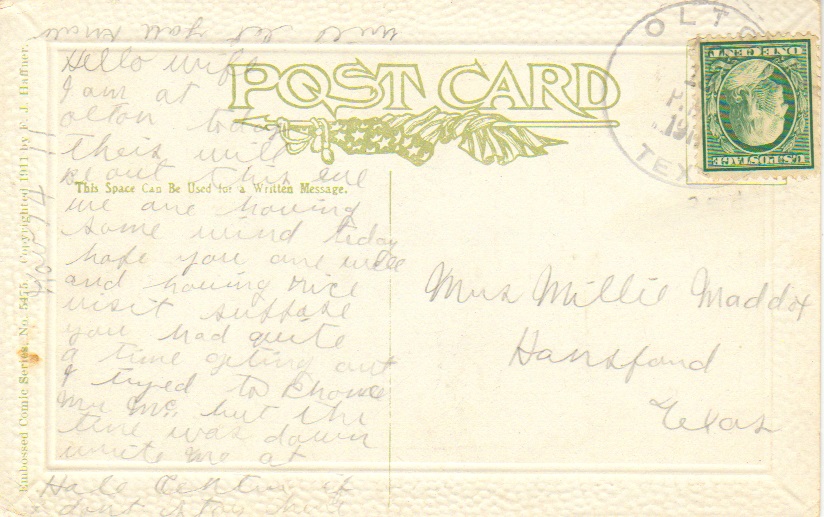 will let you know
Hello wife
I am at
olton today
theis will
be out this eve
we are having
some wind today
hope you are well
and having nice
visit suppose
you had quite
a time geting out
I tryed to Phone
Mr Mc, but the
line was down
write me at
Hale Center if
I dont
Nov 14 11
POST CARD
This Space Can Be Used for a Written Message.
Embossed Comic Series, No. Copyrighted 1911 by F. J. Haffner.
OLTO
P.M
191
TEX
ONE CENT
U.S. POSTAGE
Mrs Millie Maddox
Hansford
Texas